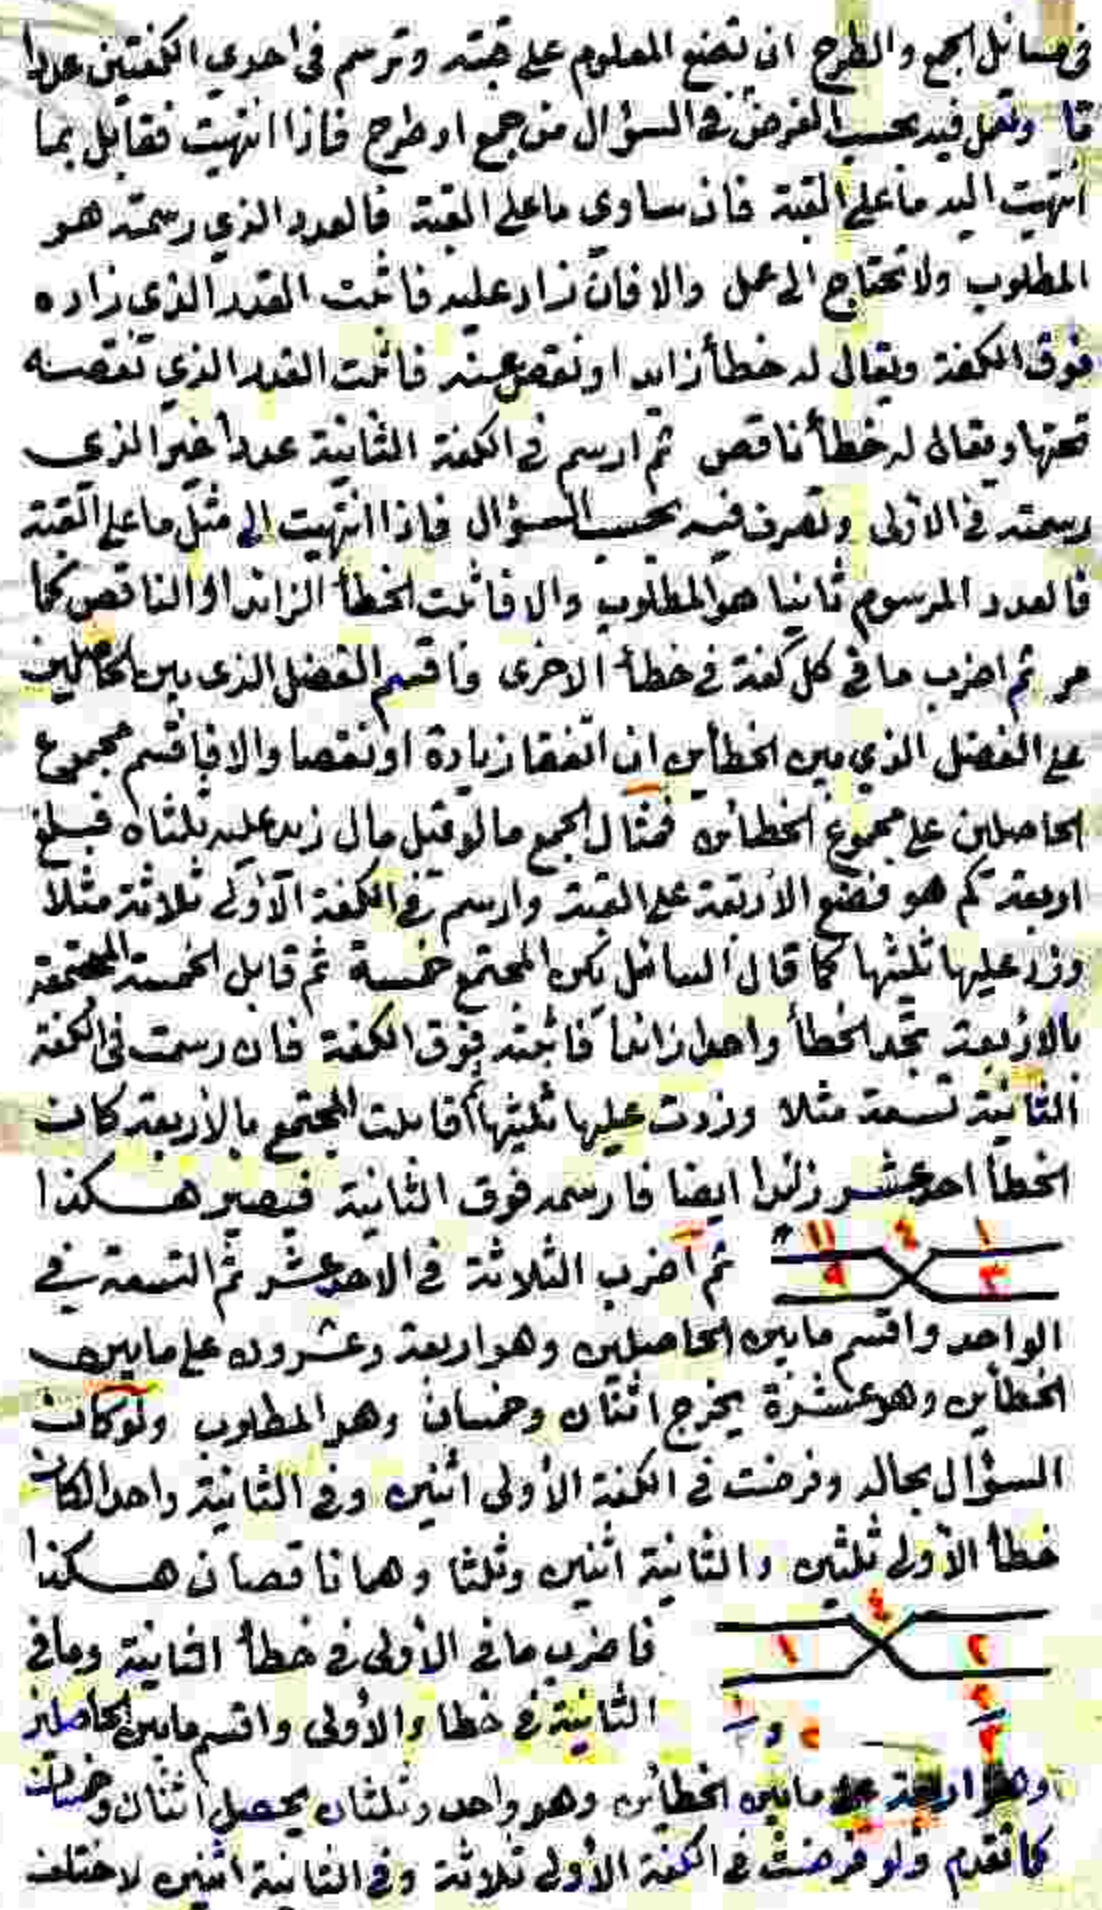 في مسائل الجمع والطرح ان تضع المعلوم على قبته وترسم في احدي الكفتين عددا
ما وتعمل فيه بحسب الغرض في السؤال من جمع او طرح فاذا انتهيت فقابل بما
انتهيت اليه ما على القبة فان ساوى ما على القبة فالعدد الذي رسمته هو
المطلوب ولا تحتاج الى عمل والا فان زاد عليه فاثبت القدر الذي زاده
فوق الكفة ويقال له خطأ زايد او نقص عنه فاثبت القدر الذي نقصه
تحتها ويقال له خطأ ناقص ثم ارسم في الكفة الثانية عددا غير الذي
رسمته في الاولى وتصرف فيه بحسب السؤال فاذا انتهيت الى مثل ما على القبة
فالعدد المرسوم ثانيا هو المطلوب والا فاثبت الخطأ الزائد او الناقص كما
مر ثم اضرب ما في كل كفة في خطأ الاخرى واقسم الفضل الذي بين الحاصلين
على الفضل الذي بين الخطأين ان اتفقا زيادة او نقصا والا فاقسم مجموع
الحاصلين على مجموع الخطائين فمثال الجمع ما لو قيل مال زيد عليه ثلثاه فبلغ
اربعة كم هو فضع الاربعة على القبة وارسم في الكفة الاولى ثلاثة مثلا
وزد عليها ثلثيها كما قال السائل يكن المجتمع خمسة ثم قابل الخمسة المجتمعة
بالاربعة تجد الخطأ واحدا زائدا فاثبته فوق الكفة فان رسمت في الكفة
الثانية تسعة مثلا وزدت عليها ثلثيها قابلت المجتمع بالاربعة كان
الخطأ احد عشر زائدا ايضا فارسمه فوق الثانية فيصير هكذا
١ ٤ ١١
٣ ٩
ثم اضرب الثلاثة في الاحد عشر ثم التسعة في
الواحد واقسم ما بين الحاصلين وهو اربعة وعشرون على ما بين
الخطأين وهو عشرة يخرج اثنان وخمسان وهو المطلوب ولو كان
السؤال بحاله وفرضت في الكفة الأولى اثنين وفي الثانية واحدا لكان
خطأ الأولى ثلثين والثانية اثنين وثلثا وهما ناقصان هكذا
٤
٢ ١
فاضرب ما في الأولى في خطأ الثانية وما في
الثانية في خطا والأولى واقسم ما بين الحاصلين
وهو اربعة على ما بين الخطائين وهو واحد وثلثان يحصل اثنان وخمسان
كما تقدم ولو فرضت في الكفة الأولى ثلاثة وفي الثانية اثنين لاختلف